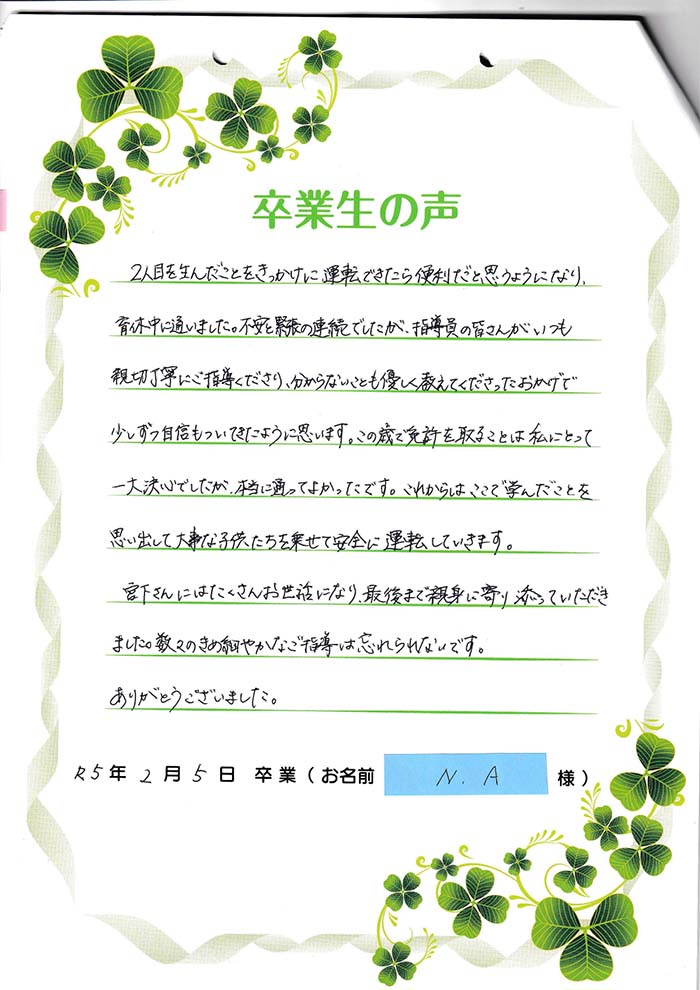 卒業生の声
2人目を生んだことをきっかけに運転できたら便利だと思うようになり、
育休中に通いました。不安と緊張の連続でしたが、指導員の皆さんがいつも
親切丁寧にご指導くださり、分からないことも優しく教えてくださったおかげで
少しずつ自信もついてきたように思います。この歳で免許を取ることは私にとって
一大決心でしたが、本当に通ってよかったです。これからはここで学んだことを
思い出して大事な子供たちを乗せて安全に運転していきます。
宮下さんにはたくさんお世話になり、最後まで親身に寄り添っていただき
ました。数々のきめ細やかなご指導は忘れられないです。
ありがとうございました。
R5年2月5日 卒業(お名前 N.A 様)